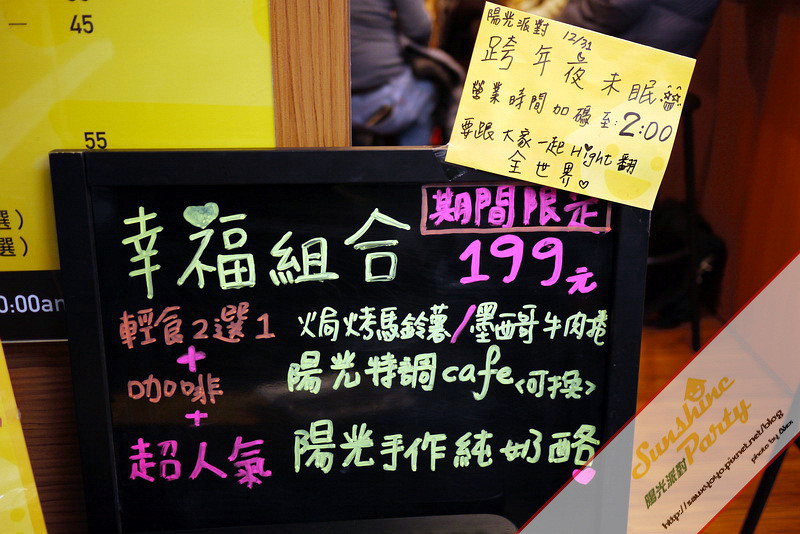 45
55
選）
選）
0:00am
陽光派對 12/31
跨年夜未眠
營業時間加碼至:2:00
要跟大家一起Hight翻
全世界
期間限定
幸福組合 199元
輕食2選1 焗烤馬鈴薯/墨西哥牛肉捲
+
咖啡 陽光特調cafe<可換>
+
超人氣 陽光手作純奶酪
Sunshine
Party
陽光派對
photo by Alex